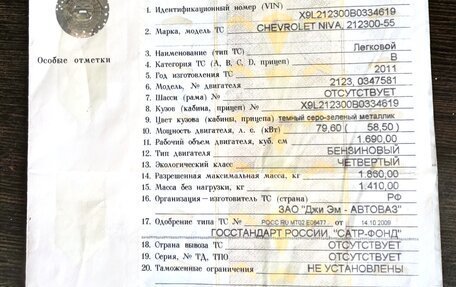 1. Идентификационный номер (VIN) X9L212300B0334619
2. Марка, модель ТС CHEVROLET NIVA, 212300-55
3. Наименование (тип ТС) Легковой
Особые отметки
4. Категория ТС (A, B, C, D, прицеп) B
5. Год изготовления ТС 2011
6. Модель, № двигателя 2123, 0347581
7. Шасси (рама) № ОТСУТСТВУЕТ
8. Кузов (кабина, прицеп) № X9L212300B0334619
9. Цвет кузова (кабины, прицепа) темный серо-зеленый металлик
10. Мощность двигателя, л. с. (кВт) 79,60 ( 58,50 )
11. Рабочий объем двигателя, куб. см 1.690,00
12. Тип двигателя БЕНЗИНОВЫЙ
13. Экологический класс ЧЕТВЕРТЫЙ
14. Разрешенная максимальная масса, кг 1.860,00
15. Масса без нагрузки, кг 1.410,00
16. Организация—изготовитель ТС (страна) РФ
ЗАО "Джи Эм - АВТОВАЗ"
17. Одобрение типа ТС № РОСС RU.MT02.E06477 от 14.10.2009
ГОССТАНДАРТ РОССИИ, "САТР-ФОНД"
18. Страна вывоза ТС ОТСУТСТВУЕТ
19. Серия, № ТД, ТПО ОТСУТСТВУЕТ
20. Таможенные ограничения НЕ УСТАНОВЛЕНЫ